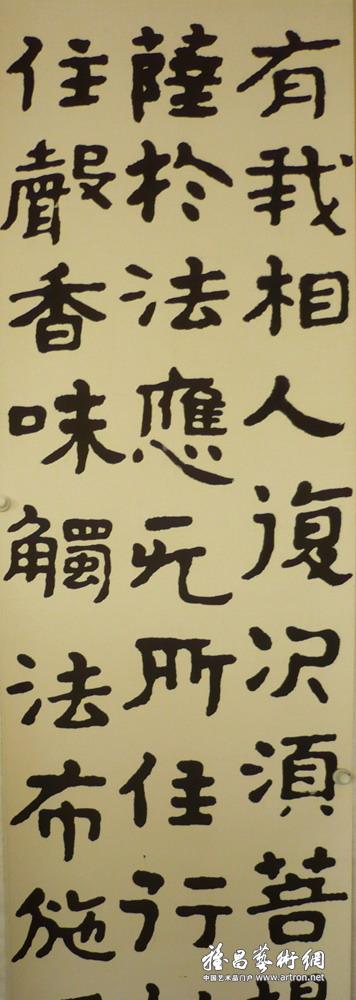 有我相人復次須菩
薩於法應无所住行
住聲香味觸法布施
雅昌藝術網
中国艺术品门户 www.artron.net